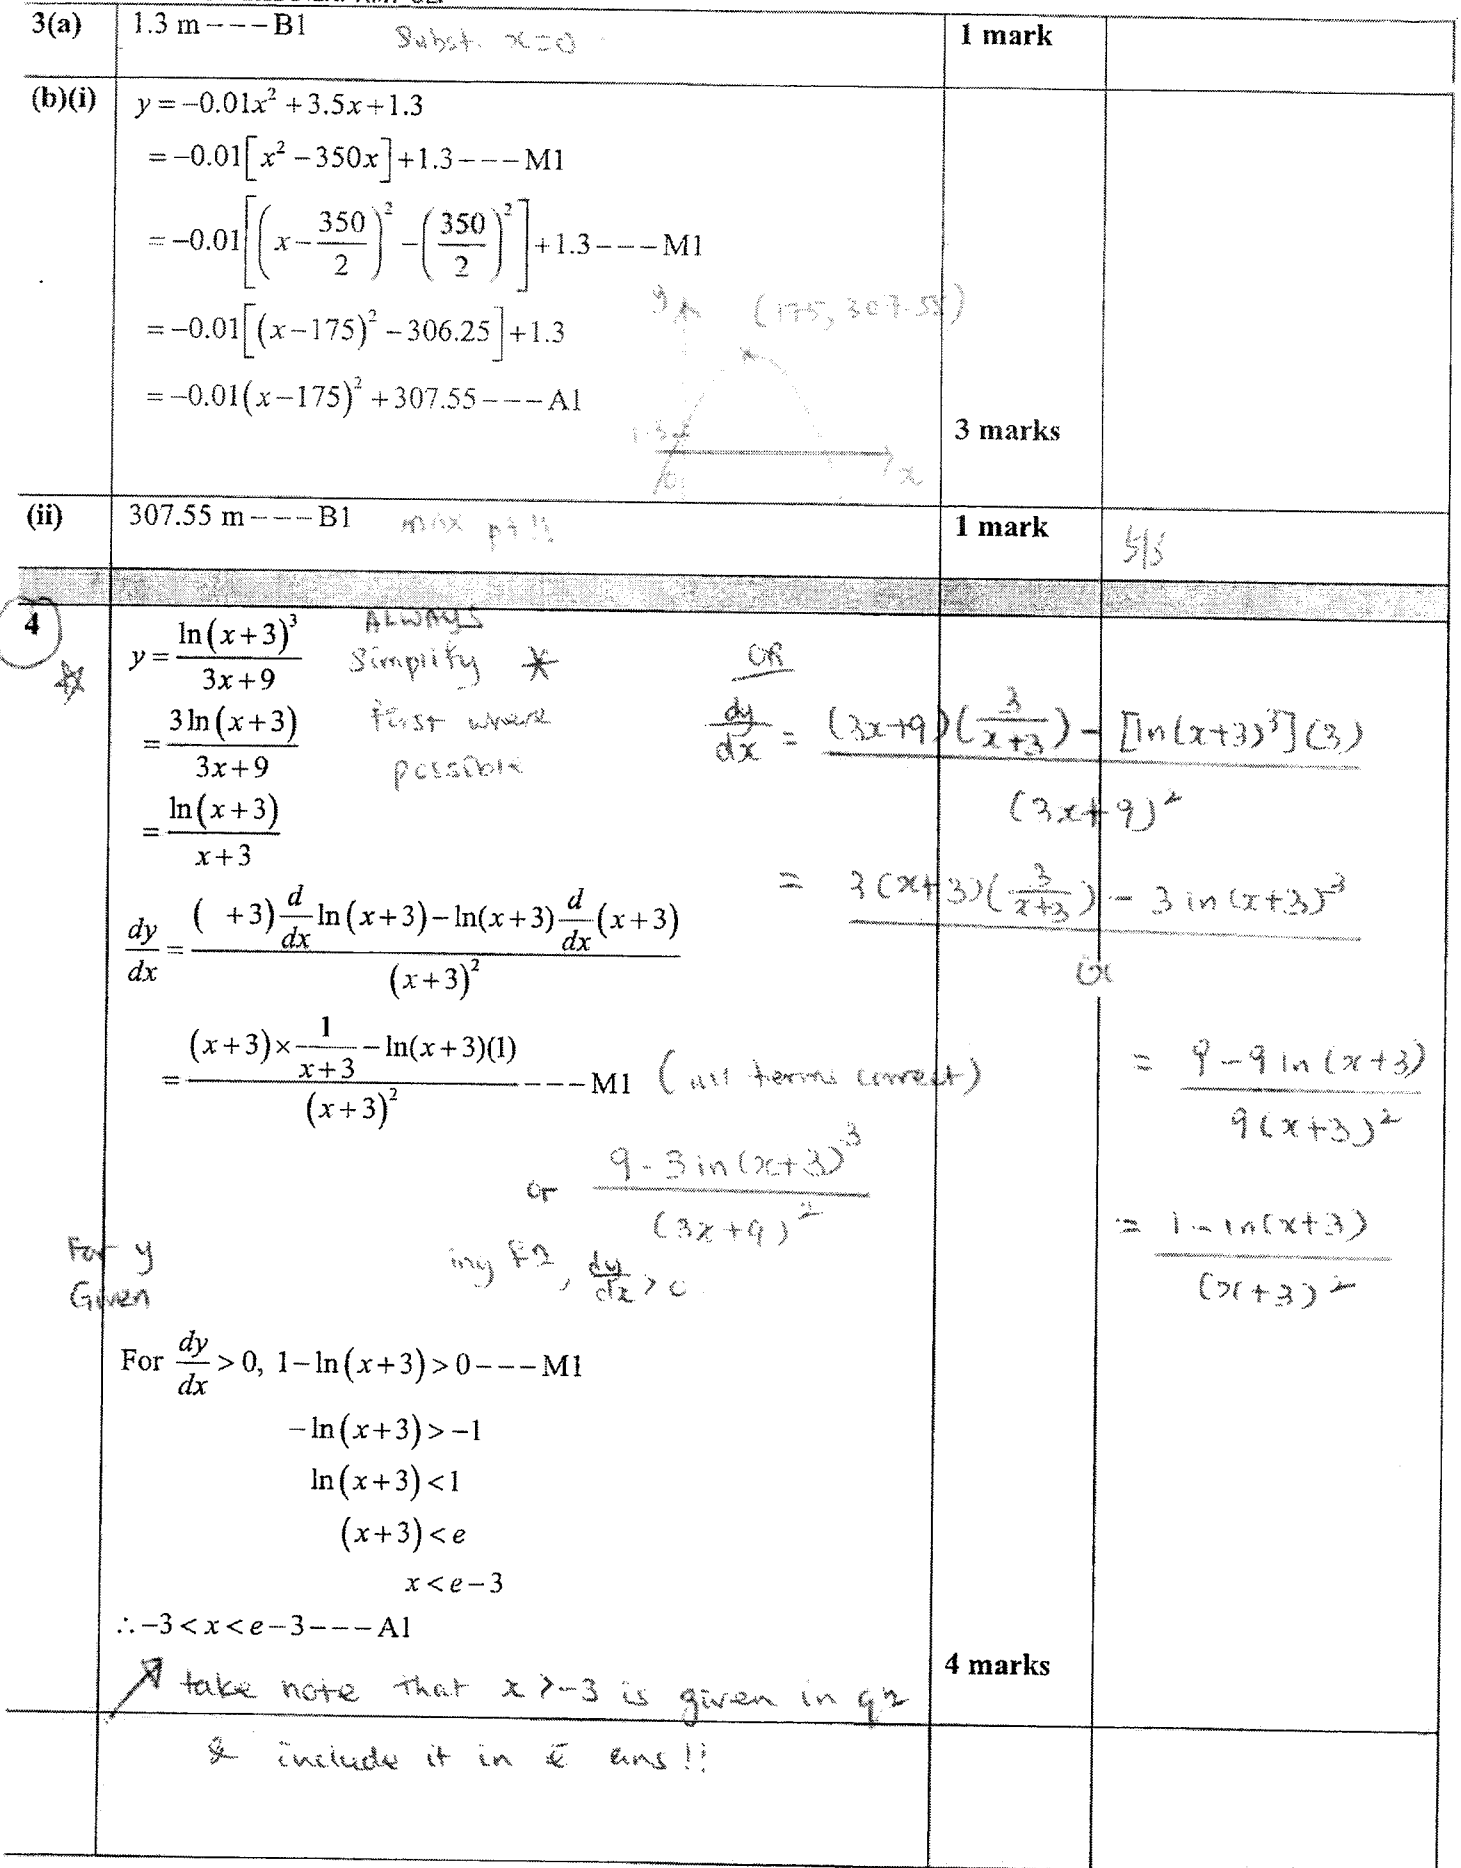 3(a) 1.3 m ---- B1 Subst. x=0 1 mark
(b)(i) y = −0.01x² + 3.5x + 1.3
= −0.01[x² − 350x] + 1.3 --- M1
= −0.01[(x − 350/2)² − (350/2)²] + 1.3 --- M1
= −0.01[(x−175)² − 306.25] + 1.3
= −0.01(x−175)² + 307.55 --- A1
y (175, 307.55)
1.3
0 x
3 marks
(ii) 307.55 m ---- B1 max pt!! 1 mark
5/5
4
y = ln(x+3)³ / (3x+9)
= 3 ln(x+3) / (3x+9)
= ln(x+3) / (x+3)
ALWAYS
simplify *
first where
possible
dy/dx = [( +3) d/dx ln(x+3) − ln(x+3) d/dx (x+3)] / (x+3)²
= [(x+3) × 1/(x+3) − ln(x+3)(1)] / (x+3)² ---- M1 (all terms correct)
or (9 - 3 ln(x+3)³) / (3x+9)²
OR
dy/dx = [(3x+9)(3/(x+3)) − [ln(x+3)³](3)] / (3x+9)²
= 3(x+3)(3/(x+3)) − 3 ln(x+3)³
= (9 − 9 ln(x+3)) / 9(x+3)²
= (1 − ln(x+3)) / (x+3)²
For y
Given
, dy/dx > 0
For dy/dx > 0, 1 − ln(x+3) > 0 --- M1
−ln(x+3) > −1
ln(x+3) < 1
(x+3) < e
x < e−3
∴ −3 < x < e−3 --- A1
4 marks
take note that x > -3 is given in qn
& include it in ans!!